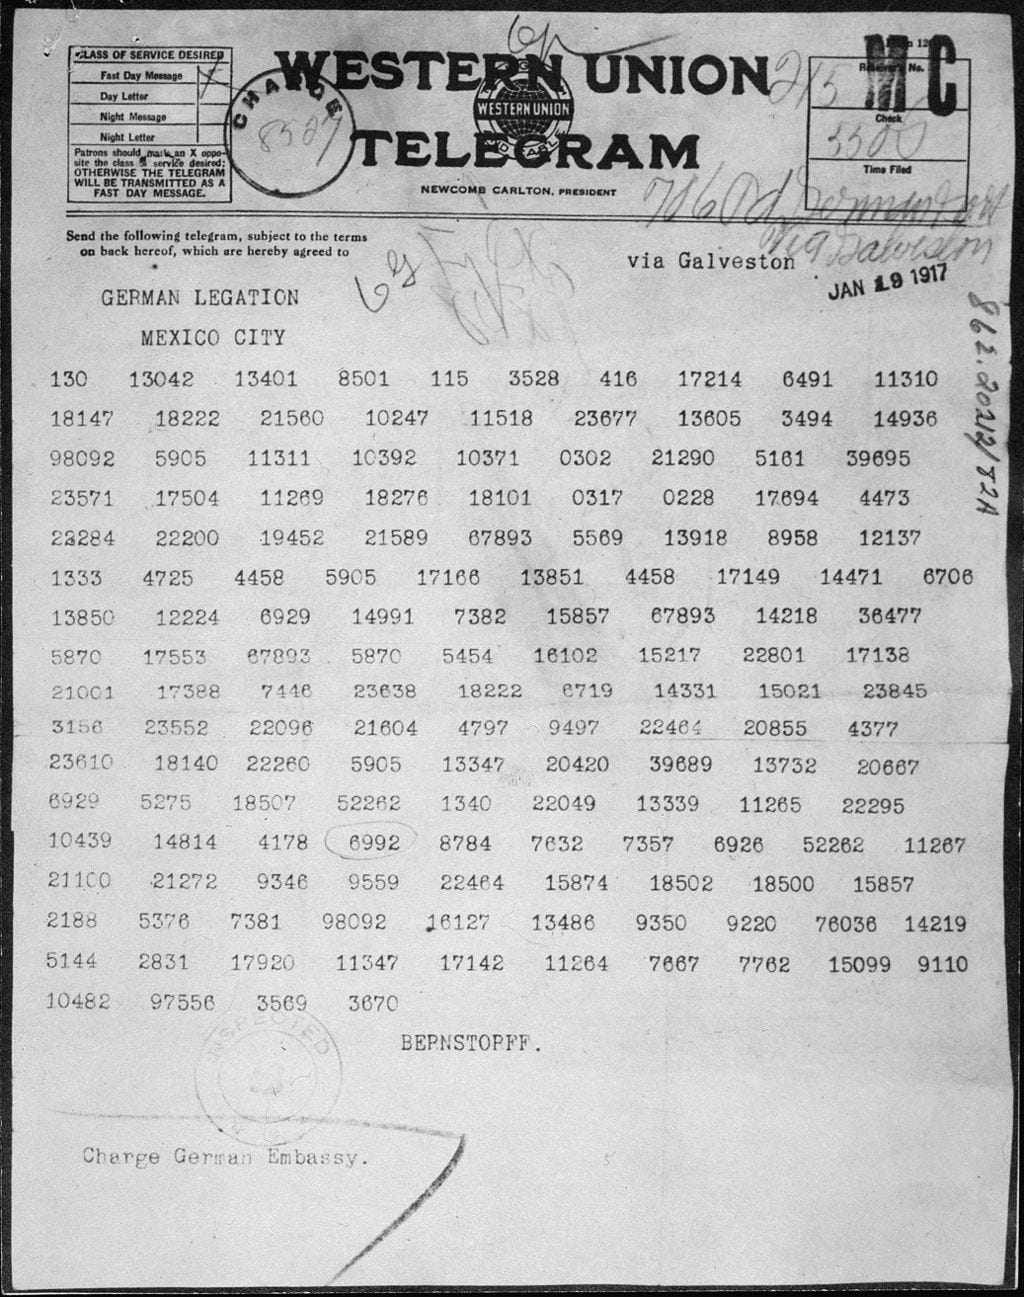 CLASS OF SERVICE DESIRED
Fast Day Message
Day Letter
Night Message
Night Letter
Patrons should mark an X oppo-
site the class of service desired;
OTHERWISE THE TELEGRAM
WILL BE TRANSMITTED AS A
FAST DAY MESSAGE.
CHARGE
8527
WESTERN UNION
WESTERN UNION
TELEGRAM
NEWCOMB CARLTON, PRESIDENT
Receiver's No.
Check
Time Filed
MC
Send the following telegram, subject to the terms
on back hereof, which are hereby agreed to
via Galveston
via Galveston
JAN 19 1917
GERMAN LEGATION
MEXICO CITY
130 13042 13401 8501 115 3528 416 17214 6491 11310
18147 18222 21560 10247 11518 23677 13605 3494 14936
98092 5905 11311 10392 10371 0302 21290 5161 39695
23571 17504 11269 18276 18101 0317 0228 17694 4473
22284 22200 19452 21589 67893 5569 13918 8958 12137
1333 4725 4458 5905 17166 13851 4458 17149 14471 6706
13850 12224 6929 14991 7382 15857 67893 14218 36477
5870 17553 67893 5870 5454 16102 15217 22801 17138
21001 17388 7446 23638 18222 6719 14331 15021 23845
3156 23552 22096 21604 4797 9497 22464 20855 4377
23610 18140 22260 5905 13347 20420 39689 13732 20667
6929 5275 18507 52262 1340 22049 13339 11265 22295
10439 14814 4178 6992 8784 7632 7357 6926 52262 11267
21100 21272 9346 9559 22464 15874 18502 18500 15857
2188 5376 7381 98092 16127 13486 9350 9220 76036 14219
5144 2831 17920 11347 17142 11264 7667 7762 15099 9110
10482 97556 3569 3670
BEPNSTOPFF.
INSPECTED
Charge German Embassy.
862.20212/82A